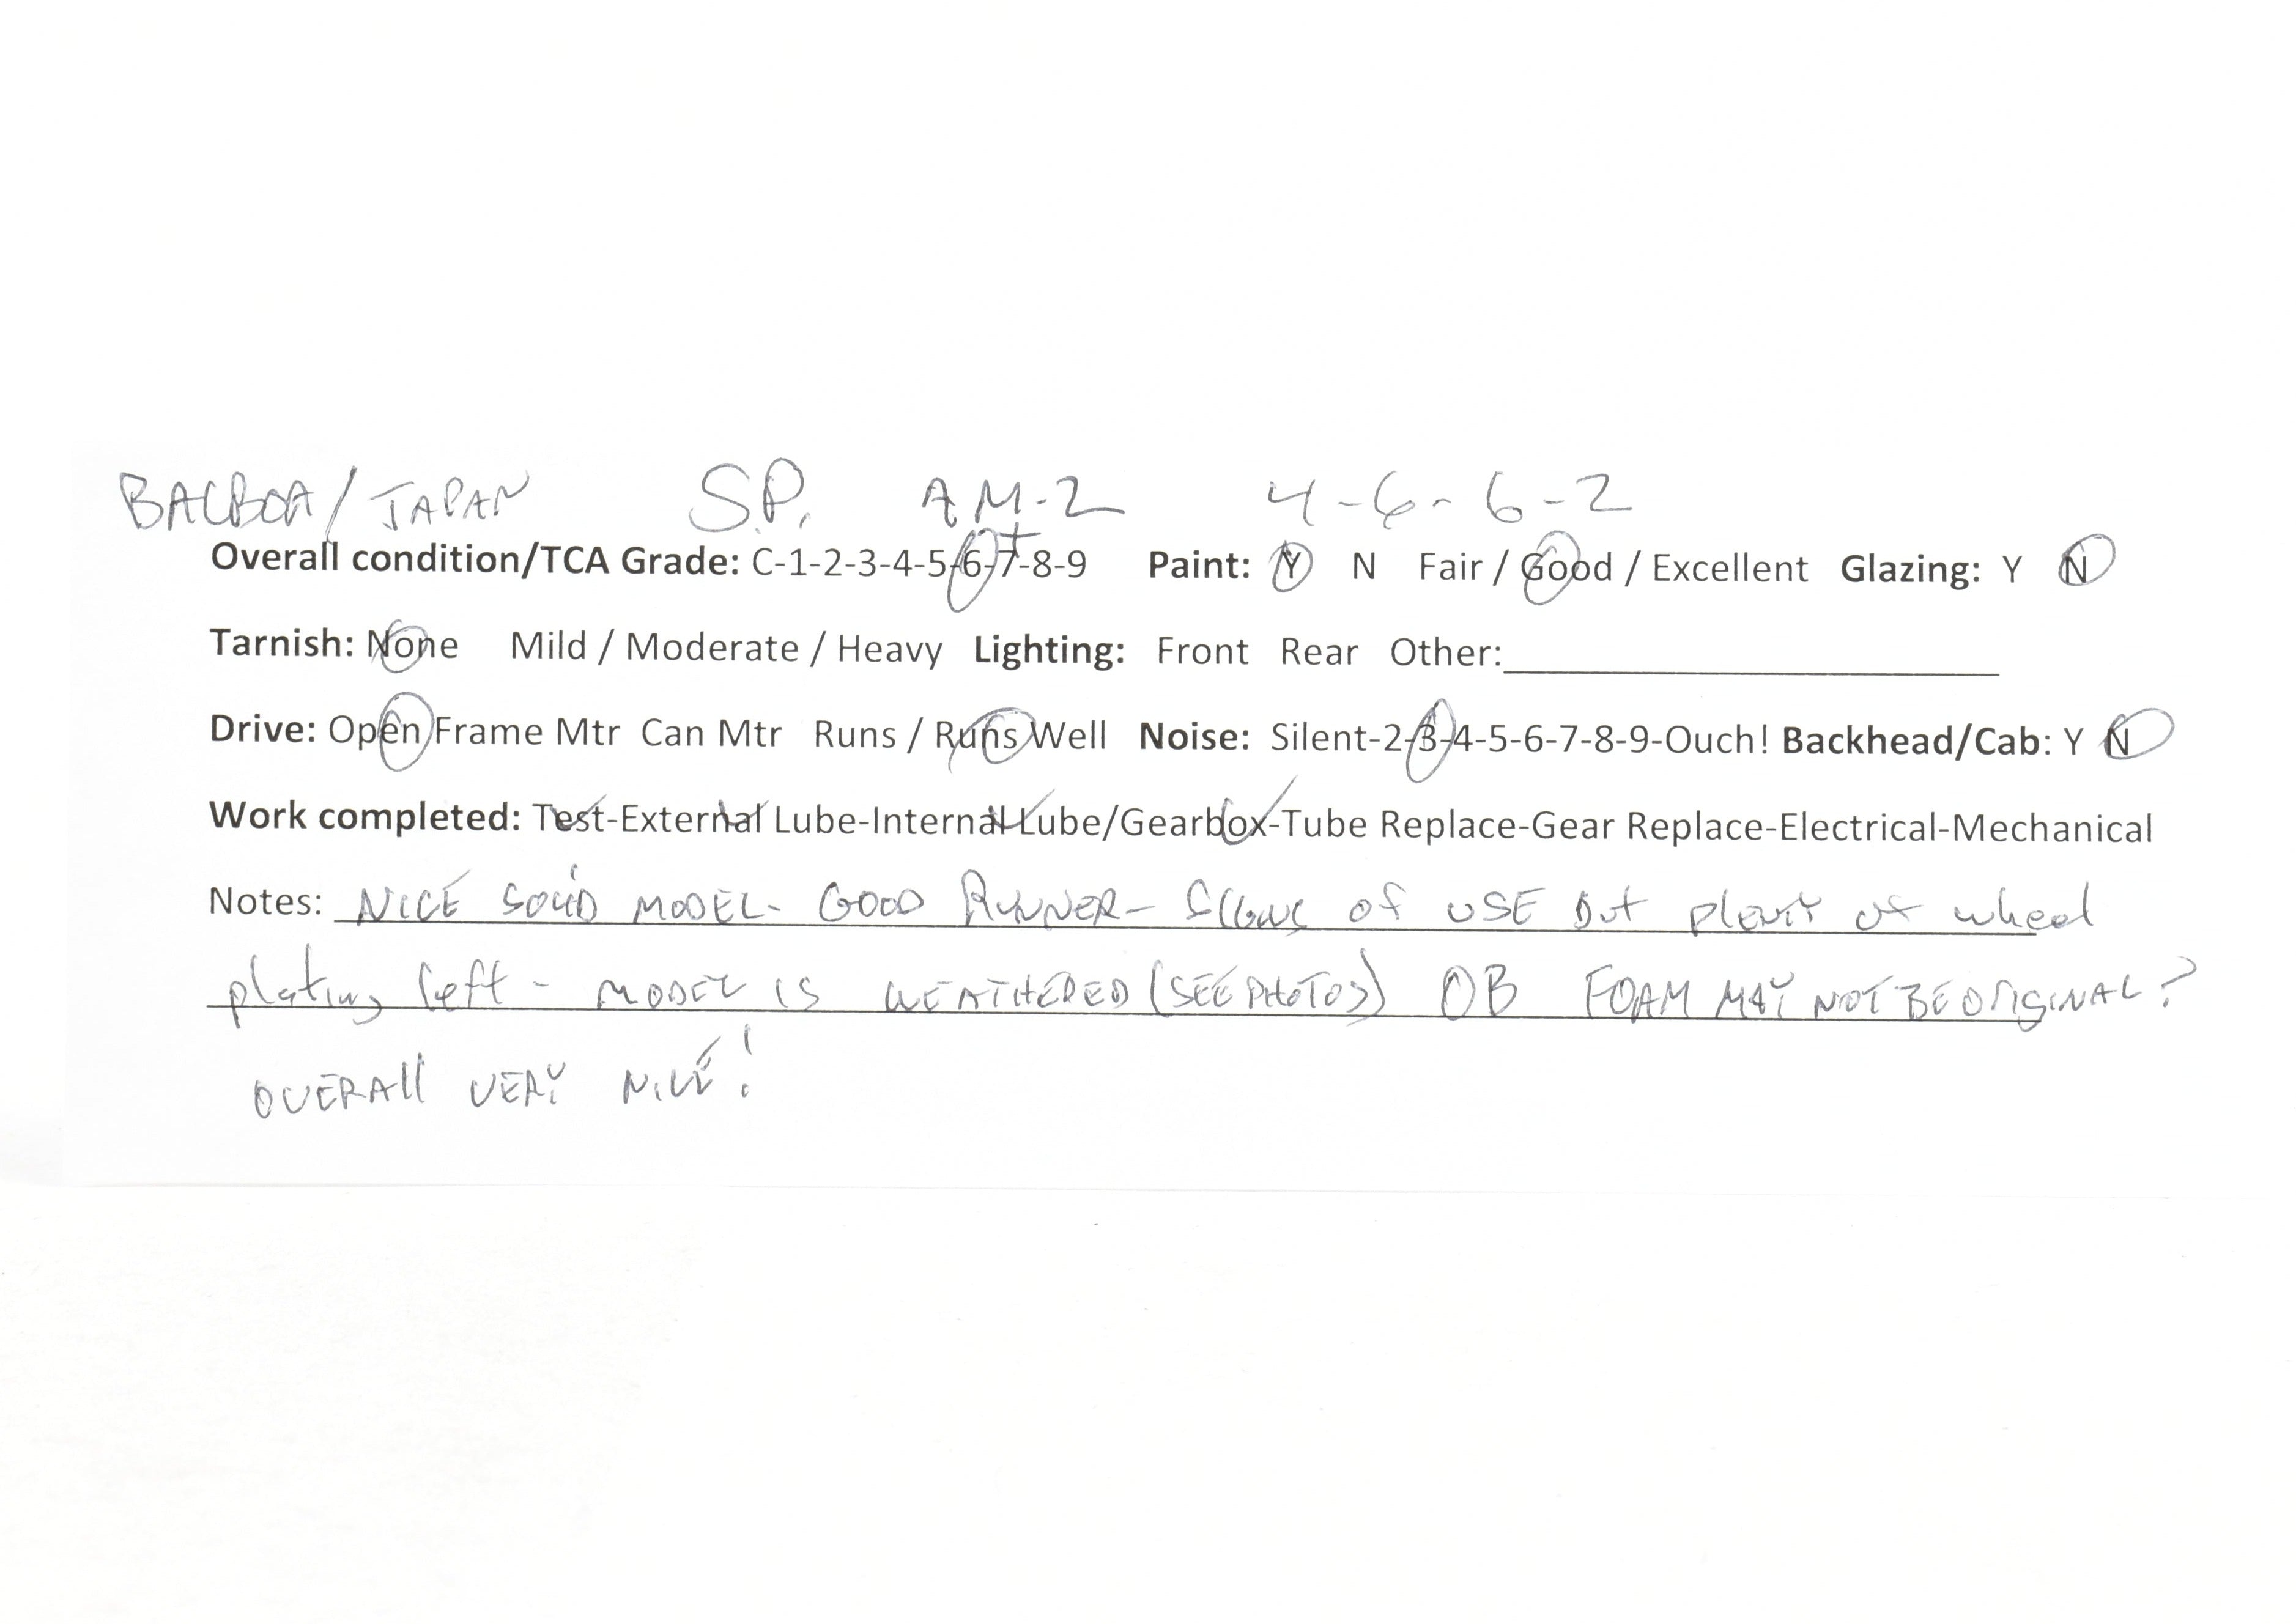 BALBOA/JAPAN S.P. AM-2 4-6-6-2
Overall condition/TCA Grade: C-1-2-3-4-5-6-7-8-9 + Paint: Y N Fair / Good / Excellent Glazing: Y N
Tarnish: None Mild / Moderate / Heavy Lighting: Front Rear Other:
Drive: Open Frame Mtr Can Mtr Runs / Runs Well Noise: Silent-2-3-4-5-6-7-8-9-Ouch! Backhead/Cab: Y N
Work completed: Test-External Lube-Internal Lube/Gearbox-Tube Replace-Gear Replace-Electrical-Mechanical
Notes: NICE SOLID MODEL- GOOD RUNNER- of USE but plenty of wheel
plating left - MODEL IS WEATHERED (SEE PHOTOS) OB FOAM MAY NOT BE ORIGINAL?
OVERAll VERY NICE!